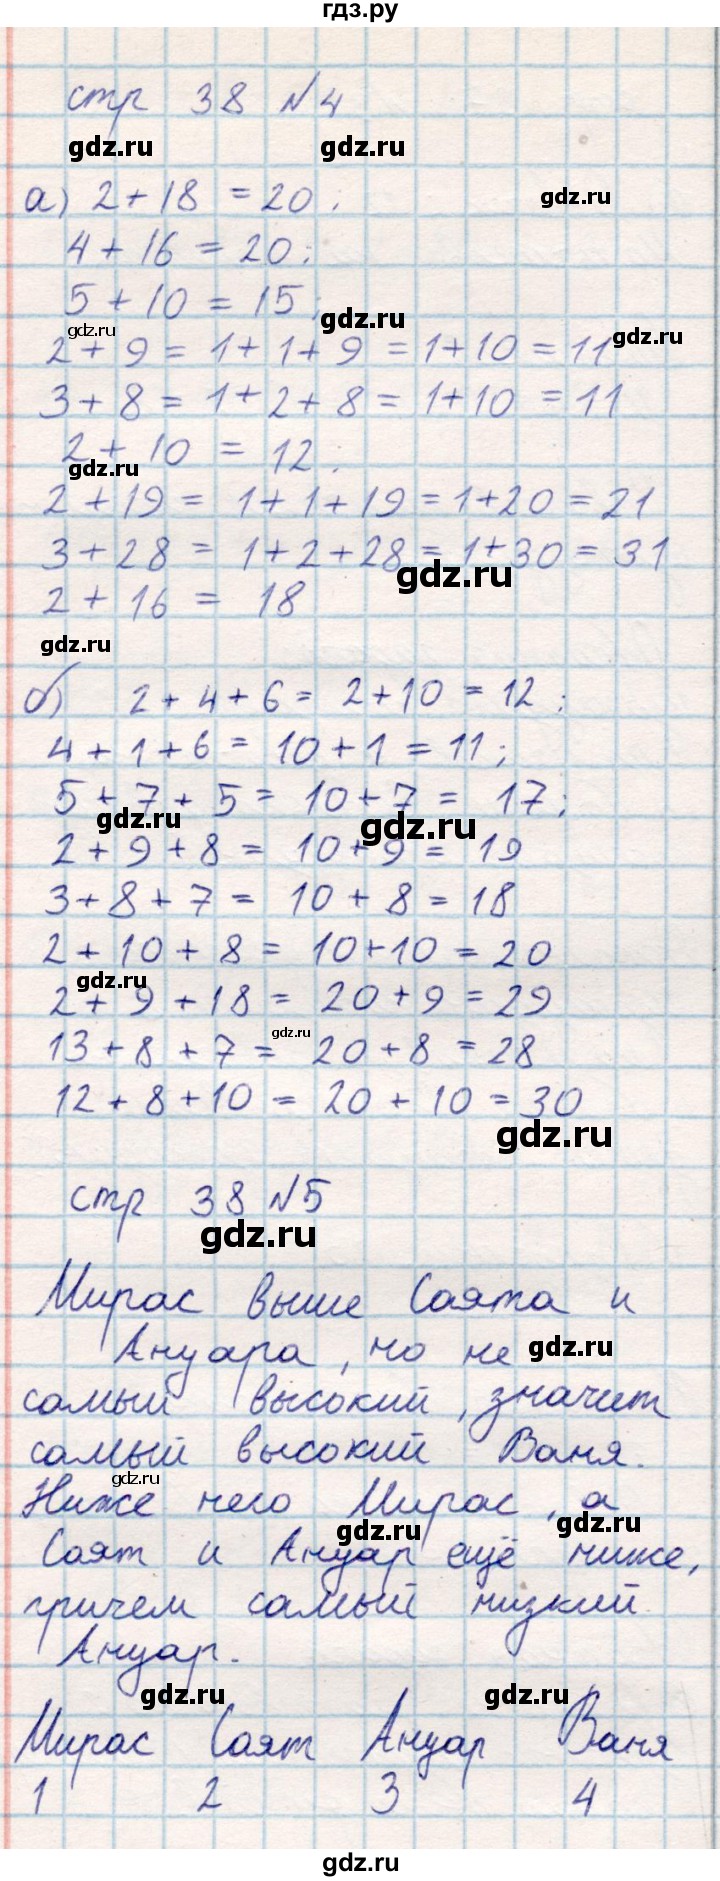 гдз.ру
стр 38 №4
gdz.ru gdz.ru
а) 2+18 = 20; gdz.ru
4+16 = 20;
5+10 = 15; gdz.ru
gdz.ru gdz.ru
2+9 = 1+1+9 = 1+10 = 11
3+8 = 1+2+8 = 1+10 = 11
2+10 = 12;
gdz.ru
2+19 = 1+1+19 = 1+20 = 21
3+28 = 1+2+28 = 1+30 = 31
gdz.ru
2+16 = 18
gdz.ru
б) 2+4+6 = 2+10 = 12;
4+1+6 = 10+1 = 11;
5+7+5 = 10+7 = 17;
gdz.ru gdz.ru
2+9+8 = 10+9 = 19
3+8+7 = 10+8 = 18
2+10+8 = 10+10 = 20
gdz.ru
2+9+18 = 20+9 = 29
gdz.ru
13+8+7 = 20+8 = 28
12+8+10 = 20+10 = 30
gdz.ru
стр 38 №5
gdz.ru
Мирас выше Саята и
Ануара, но не gdz.ru
самый высокий, значит
самый высокий Ваня.
gdz.ru
Ниже него Мирас, а
gdz.ru gdz.ru
Саят и Ануар ещё ниже,
причем самый низкий
Ануар.
gdz.ru gdz.ru
Мирас Саят Ануар Ваня
1 2 3 4
gdz.ru